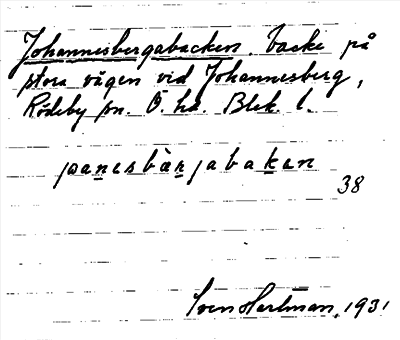 Johannesbergabacken. backe på
stora vägen vid Johannesberg,
Rödeby sn. Ö. hd. Blek. l.
joanesbàrjabaken
38
Sven Hartman, 1931